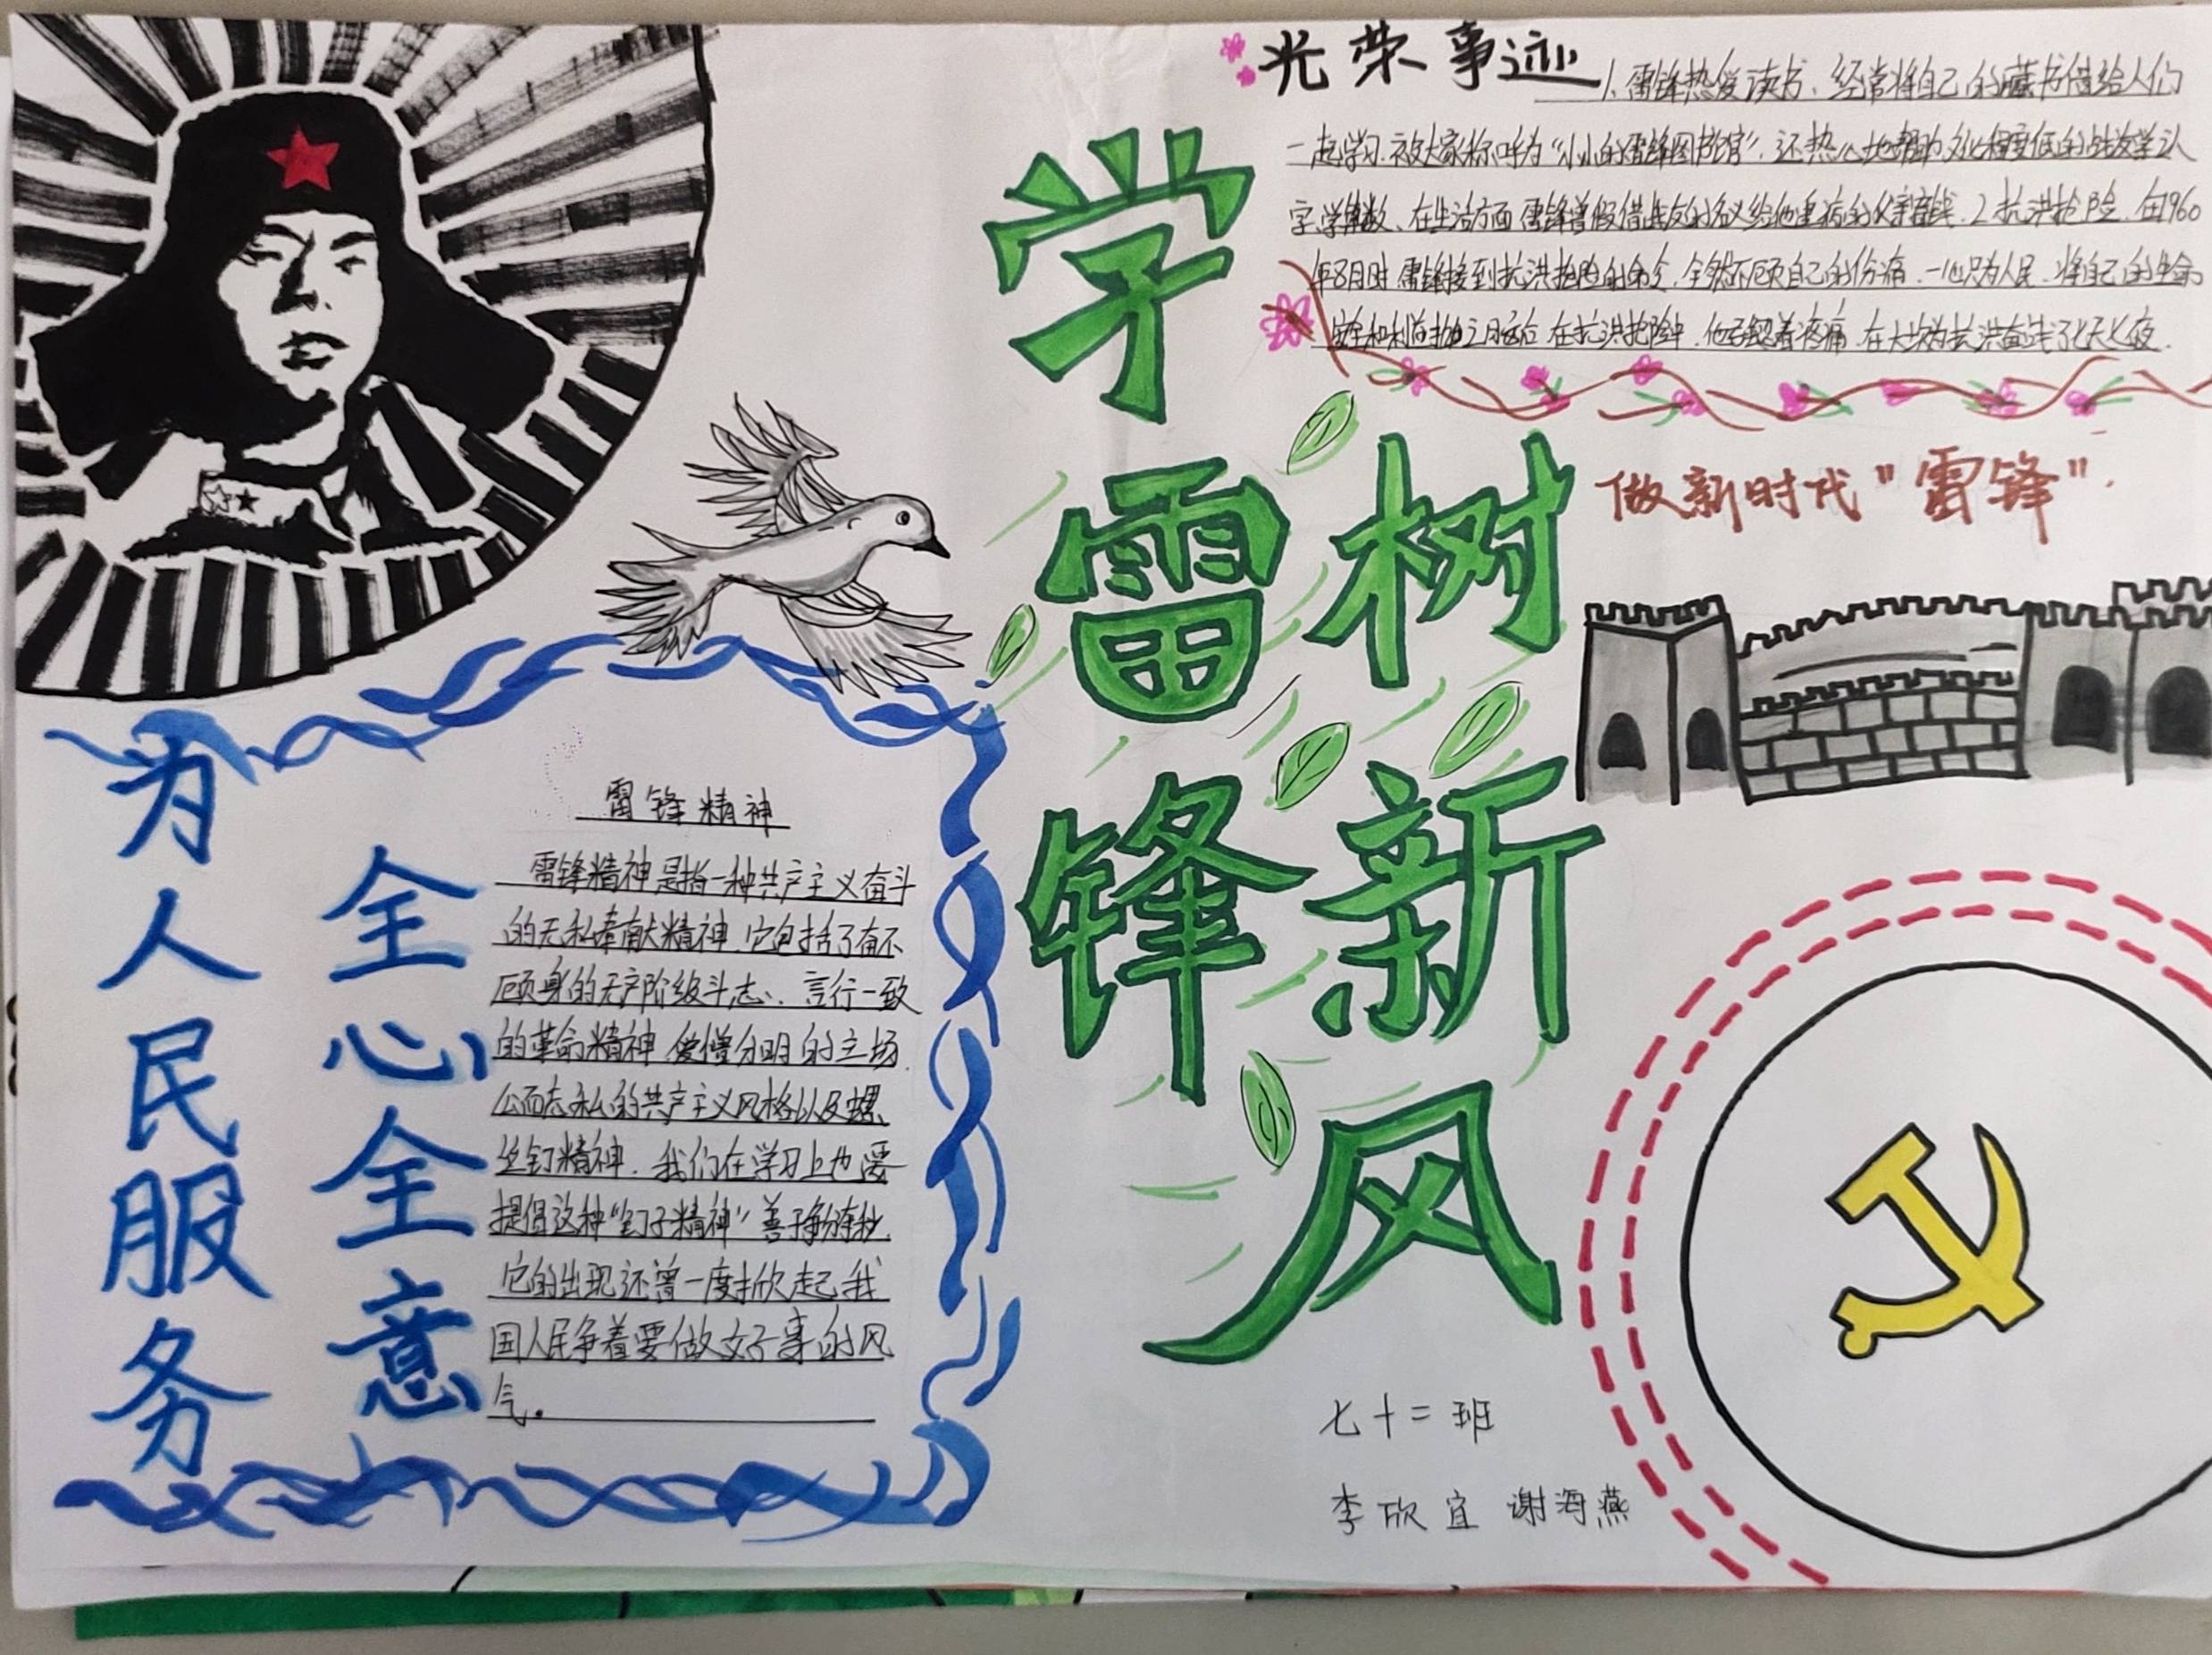 光荣事迹
1、雷锋热爱读书、经常将自己的藏书借给人们
一起学习.被大家称呼为“小小的雷锋图书馆”.还热心地帮助文化程度低的战友学认
字,学算数、在生活方面雷锋曾假借战友的名义给他重病的父亲寄钱.2抗洪抢险.在1960
年8月时.雷锋接到抗洪抢险的命令.全然不顾自己的伤痛.一心只为人民.将自己的生命
安全和利益抛之脑后.在抗洪抢险中.他忍着疼痛.在大坝为抗洪奋战了七天七夜.
学雷锋
树新风
做新时代“雷锋”.
为人民服务
全心全意
雷锋精神
雷锋精神是指一种共产主义奋斗
的无私奉献精神.它包括了奋不
顾身的无产阶级斗志、言行一致
的革命精神.爱憎分明的立场.
公而忘私的共产主义风格以及螺
丝钉精神.我们在学习上也要
提倡这种“钉子精神”善于争分夺秒.
它的出现还曾一度掀起我
国人民争着要做好事的风
气.
七十二班
李欣宜 谢海燕